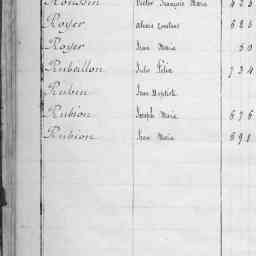 Roussin Victor François Marie 4 2 5
Royer Alexis 6 2 5
Royer Jean Marie 5 0
Rubeillon Jules Félix 7 3 4
Rubin Jean Baptiste
Rubion Joseph Marie 6 7 6
Rubion Jean Marie 6 9 8